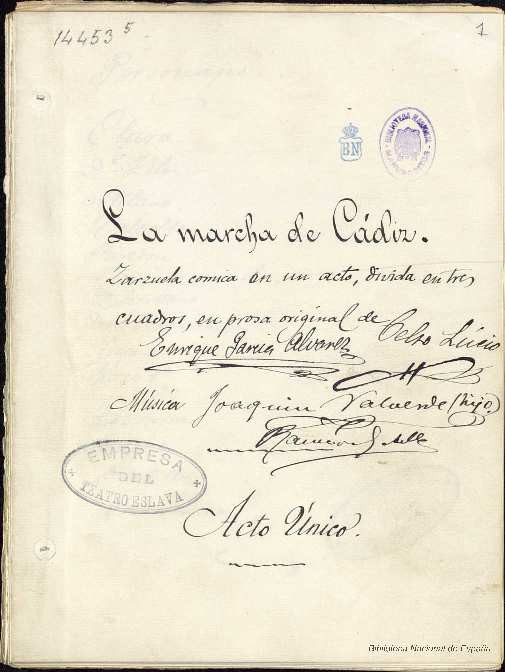 14453 5
1
BN
BIBLIOTECA NACIONAL
La marcha de Cádiz.
Zarzuela comica en un acto, divida en tres
cuadros, en prosa original de Celso Lúcio
Enrique García Alvarez
Música Joaquin Valverde (hijo)
Ramón
EMPRESA
DEL
TEATRO ESLAVA
Acto Único.
Biblioteca Nacional de España